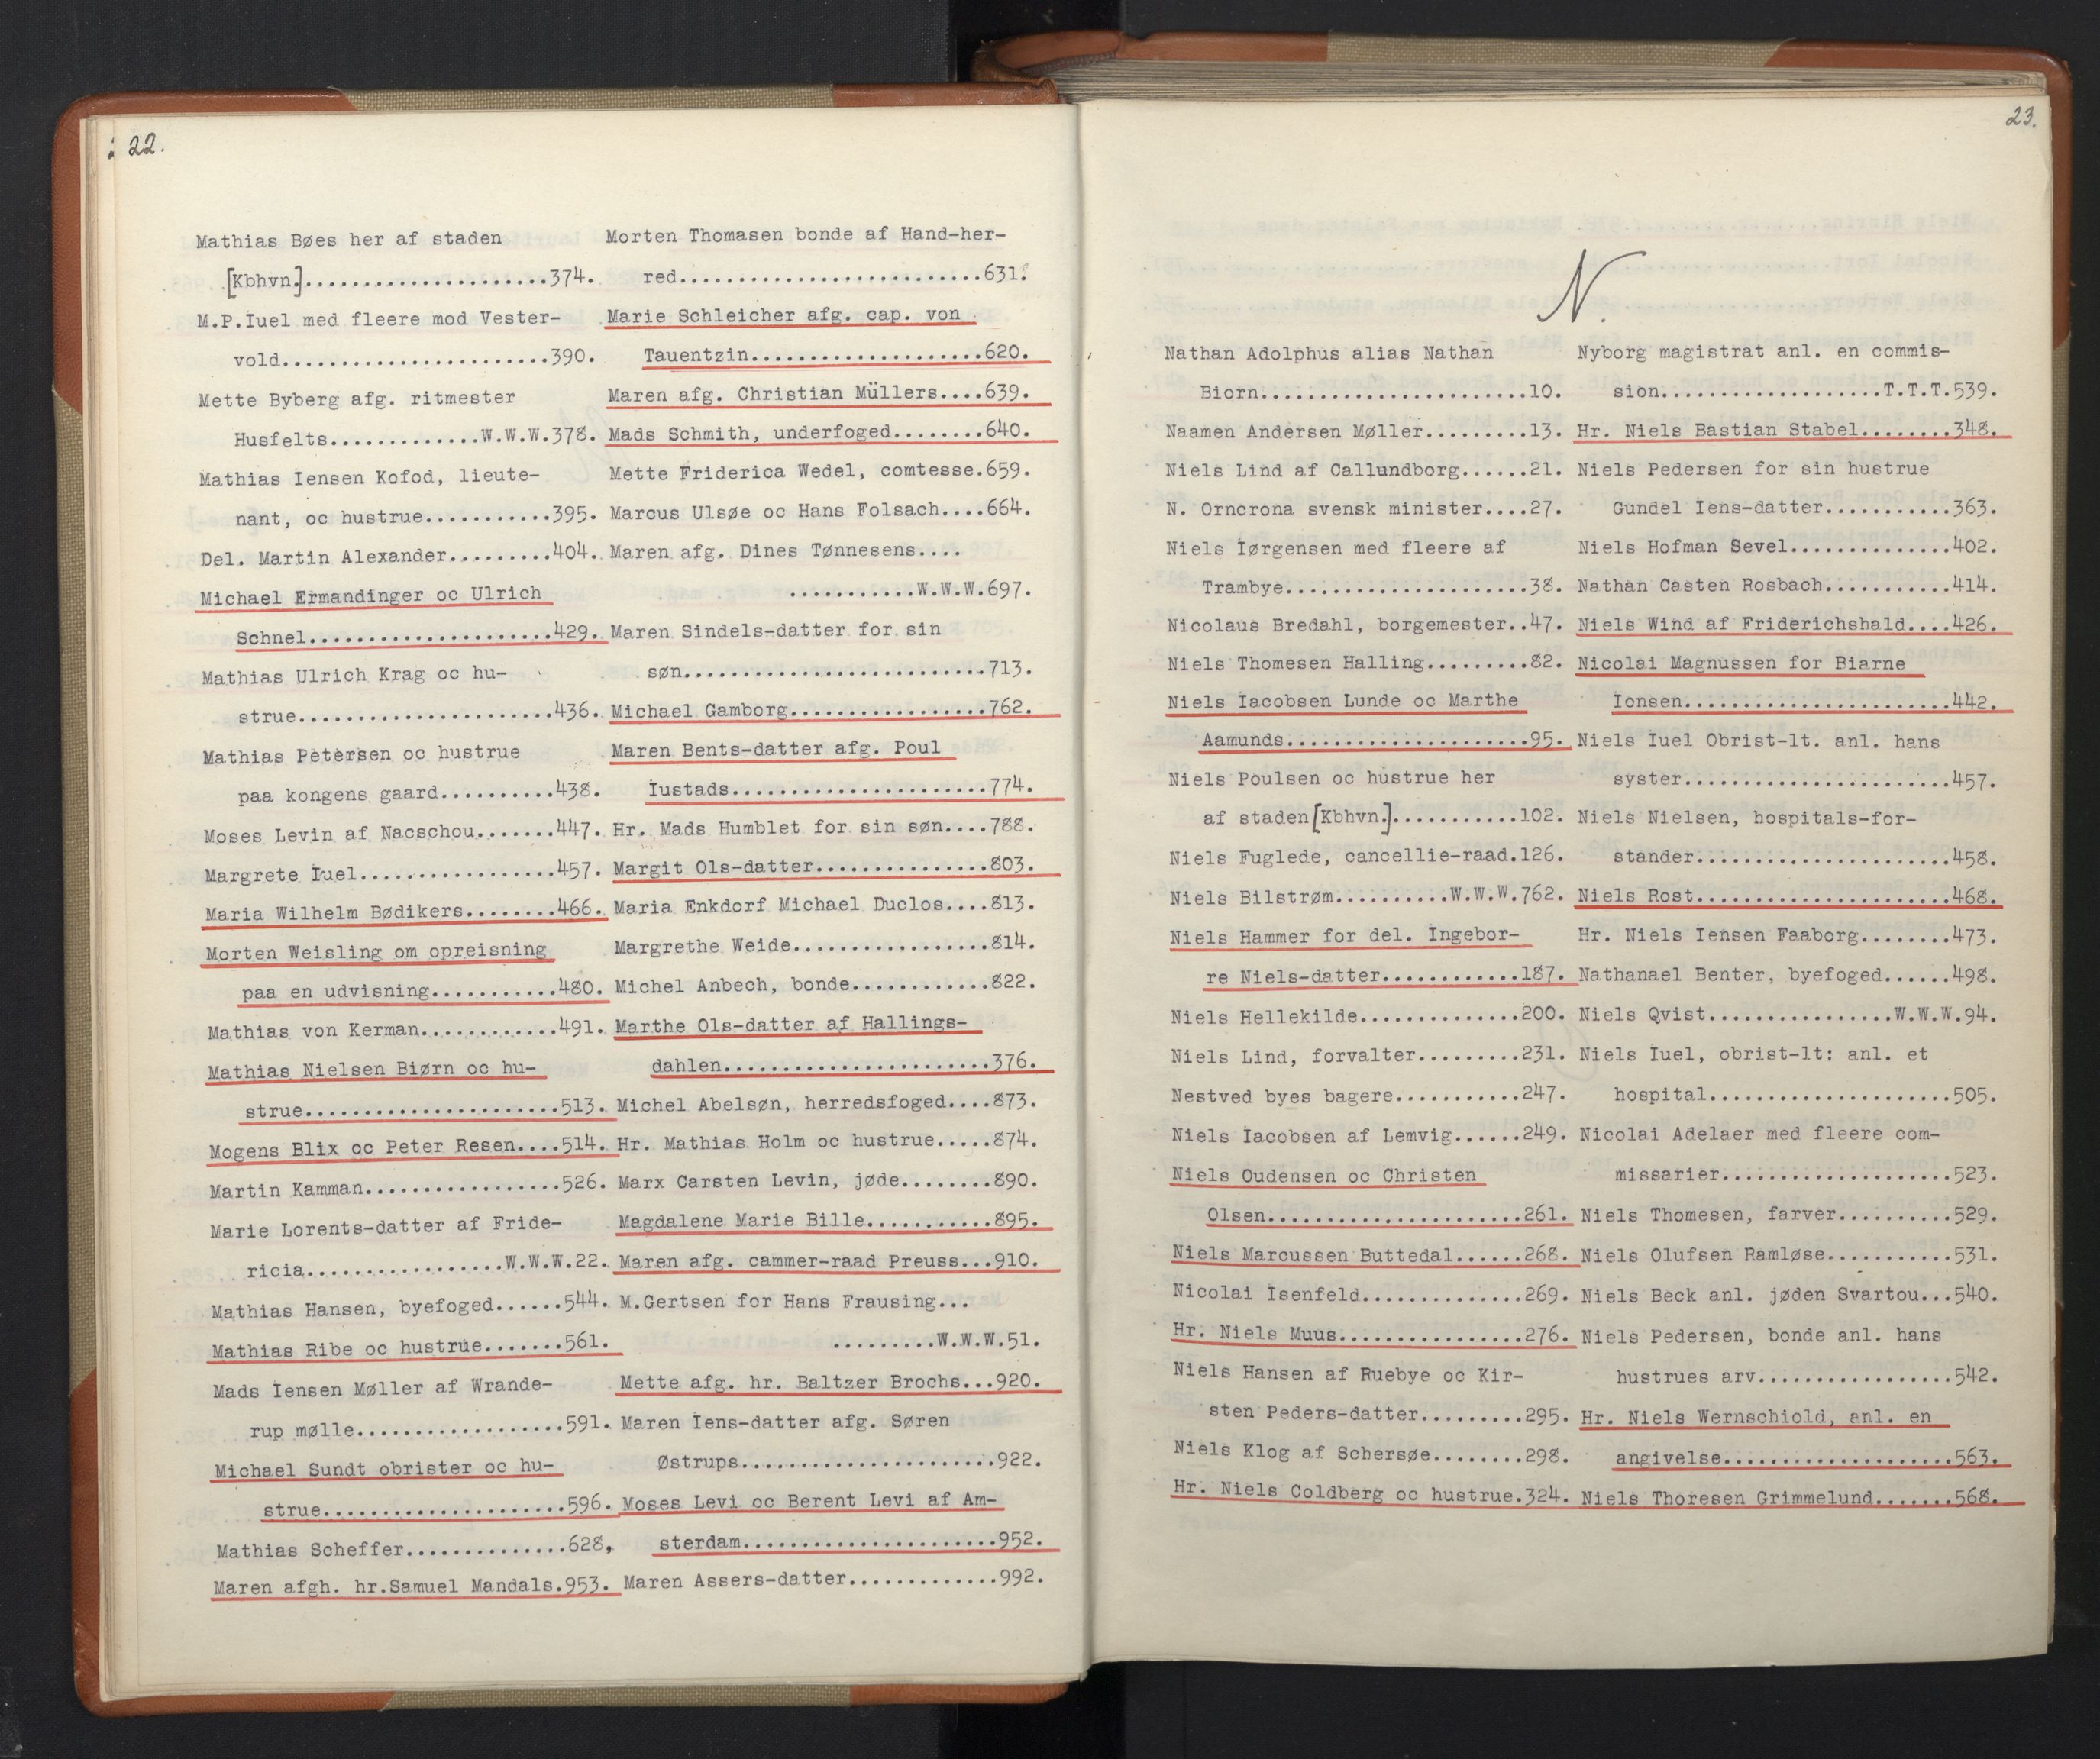 22.
Mathias Bøes her af staden
[Kbhvn.].....................374.
M.P.Iuel med fleere mod Vester-
vold.......................390.
Mette Byberg afg. ritmester
Husfelts.............W.W.W.378.
Mathias Iensen Kofod, lieute-
nant, oc hustrue...........395.
Del. Martin Alexander.........404.
Michael Ermandinger oc Ulrich
Schnel.....................429.
Mathias Ulrich Krag oc hu-
strue......................436.
Mathias Petersen oc hustrue
paa kongens gaard..........438.
Moses Levin af Nacschou.......447.
Margrete Iuel.................457.
Maria Wilhelm Bødikers........466.
Morten Weisling om opreisning
paa en udvisning...........480.
Mathias von Kerman............491.
Mathias Nielsen Biørn oc hu-
strue......................513.
Mogens Blix oc Peter Resen....514.
Martin Kamman.................526.
Marie Lorents-datter af Fride-
ricia.................W.W.W.22.
Mathias Hansen, byefoged......544.
Mathias Ribe oc hustrue.......561.
Mads Iensen Møller af Wrande-
rup mølle..................591.
Michael Sundt obrister oc hu-
strue.....................596.
Mathias Scheffer..............628,
Maren afgh. hr.Samuel Mandals.953.
Morten Thomasen bonde af Hand-her-
red..........................631.
Marie Schleicher afg. cap. von
Tauentzin....................620.
Maren afg. Christian Müllers....639.
Mads Schmith, underfoged........640.
Mette Friderica Wedel, comtesse.659.
Marcus Ulsøe oc Hans Folsach....664.
Maren afg. Dines Tønnesens....
...........W.W.W.697.
Maren Sindels-datter for sin
søn..........................713.
Michael Gamborg.................762.
Maren Bents-datter afg. Poul
Iustads......................774.
Hr. Mads Humblet for sin søn....788.
Margit Ols-datter...............803.
Maria Enkdorf Michael Duclos....813.
Margrethe Weide.................814.
Michel Anbech, bonde............822.
Marthe Ols-datter af Hallings-
dahlen.......................376.
Michel Abelsøn, herredsfoged....873.
Hr. Mathias Holm oc hustrue.....874.
Marx Carsten Levin, jøde........890.
Magdalene Marie Bille...........895.
Maren afg. cammer-raad Preuss...910.
M.Gertsen for Hans Frausing...
.........W.W.W.51.
Mette afg. hr. Baltzer Brochs...920.
Maren Iens-datter afg. Søren
Østrups......................922.
Moses Levi oc Berent Levi af Am-
sterdam......................952.
Maren Assers-datter.............992.
23.
N.
Nathan Adolphus alias Nathan
Biorn.......................10.
Naamen Andersen Møller.........13.
Niels Lind af Callundborg......21.
N. Orncrona svensk minister....27.
Niels Iørgensen med fleere af
Trambye.....................38.
Nicolaus Bredahl, borgemester..47.
Niels Thomesen Halling.........82.
Niels Iacobsen Lunde oc Marthe
Aamunds.....................95.
Niels Poulsen oc hustrue her
af staden[Kbhvn.]...........102.
Niels Fuglede, cancellie-raad.126.
Niels Bilstrøm..........W.W.W.762.
Niels Hammer for del. Ingebor-
re Niels-datter............187.
Niels Hellekilde..............200.
Niels Lind, forvalter.........231.
Nestved byes bagere...........247.
Niels Iacobsen af Lemvig......249.
Niels Oudensen oc Christen
Olsen......................261.
Niels Marcussen Buttedal......268.
Nicolai Isenfeld..............269.
Hr. Niels Muus................276.
Niels Hansen af Ruebye oc Kir-
sten Peders-datter.........295.
Niels Klog af Schersøe........298.
Hr. Niels Coldberg oc hustrue.324.
Nyborg magistrat anl. en commis-
sion...................T.T.T.539.
Hr. Niels Bastian Stabel........348.
Niels Pedersen for sin hustrue
Gundel Iens-datter...........363.
Niels Hofman Sevel..............402.
Nathan Casten Rosbach...........414.
Niels Wind af Friderichshald....426.
Nicolai Magnussen for Biarne
Ionsen.......................442.
Niels Iuel Obrist-lt. anl. hans
syster.......................457.
Niels Nielsen, hospitals-for-
stander......................458.
Niels Rost......................468.
Hr. Niels Iensen Faaborg........473.
Nathanael Benter, byefoged......498.
Niels Qvist................W.W.W.94.
Niels Iuel, obrist-lt: anl. et
hospital.....................505.
Nicolai Adelaer med fleere com-
missarier....................523.
Niels Thomesen, farver..........529.
Niels Olufsen Ramløse...........531.
Niels Beck anl. jøden Svartou...540.
Niels Pedersen, bonde anl. hans
hustrues arv.................542.
Hr. Niels Wernschiold, anl. en
angivelse....................563.
Niels Thoresen Grimmelund.......568.